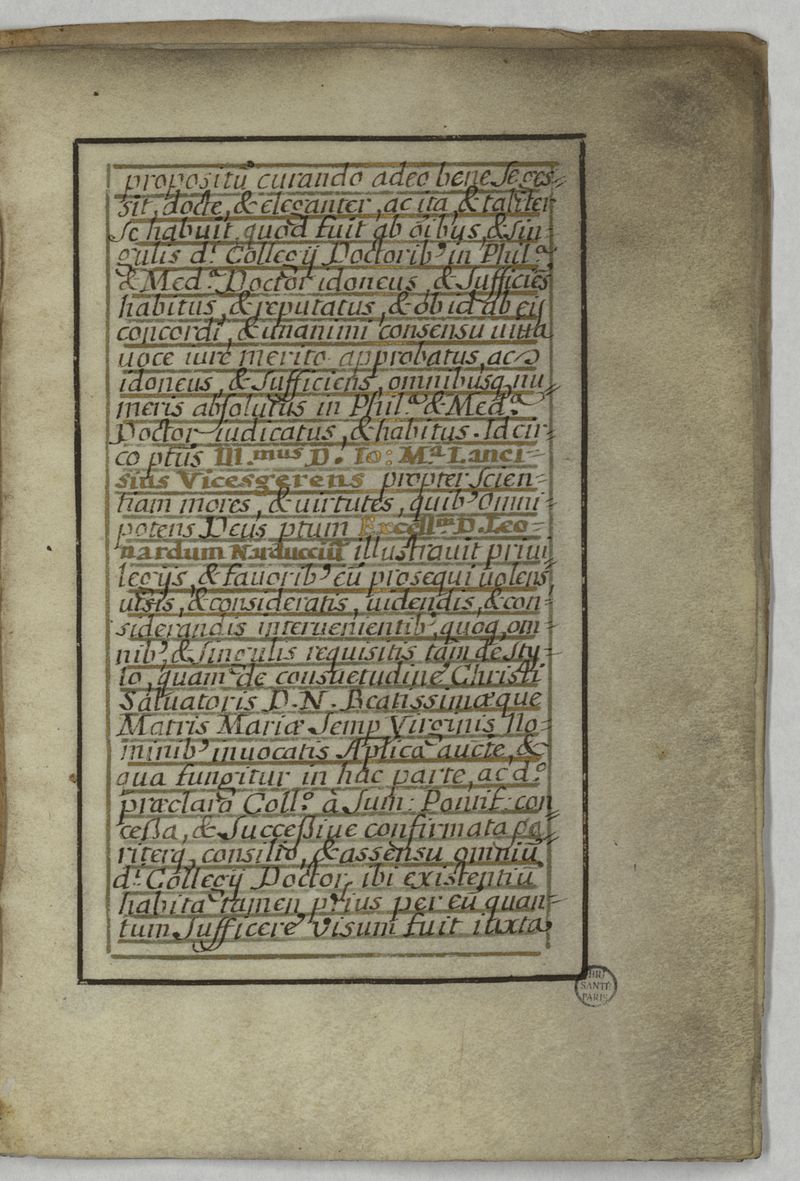 propositũ curando adeo bene se ges=
sit, docte, & eleganter, ac ita, & taliter
se habuit, quod fuit ab oībus, & sin=
gulis d.ⁱ Collegij Doctorib' in Phil.ª
& Med.ª Doctor idoneus, & sufficiēs
habitus, & reputatus, & ob id ab eij
concordi, & unanimi consensu
uoce iure merito approbatus, ac
idoneus, & sufficiens, omnibusq, nu=
meris absolutus in Phil.ª & Med.ª
Doctor iudicatus, & habitus. Idcir=
co ptus Ill.mus D. Io: M.ª Lanci=
sius Vicesgerens propter scien=
tiam mores, & uirtutes, quib' Omni=
potens Deus ptum Excell.m D. Leo=
nardum Narducciũ illustrauit priui
legijs, & fauorib' eũ prosequi uolens,
uisis, & consideratis, uidendis, & con=
siderandis interuenientib', quoq, om=
nib', & singulis requisitis tam de sty=
lo, quam de consuetudine Christi
Saluatoris D. N. Beatissimæque
Matris Mariæ semp Virginis No=
minib' inuocatis Aplica aucte, &
qua fungitur in hac parte, ac d.º
præclaro Coll.º à Sum: Pontif: con
ceßa, & succeßiue confirmata pa=
riterq, consilio, & assensu omniũ
d.ⁱ Collegij Doctor, ibi existentiũ
habita tamen prius per eũ quan=
tum sufficere visum fuit iuxta
SANTÉ
PARIS